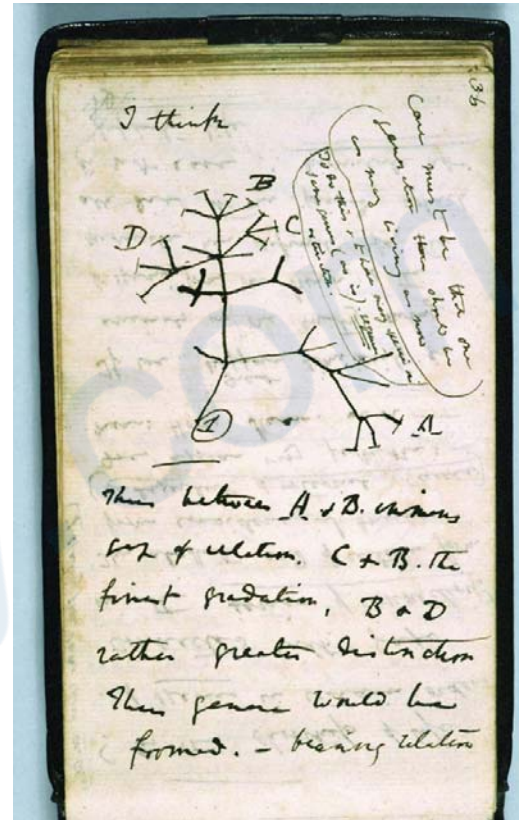 36
I think
Case must be that one
generation then should be
as many living as now
To do this & to have many species in
same genus (as is). requires
extinction.
B
D
C
A
1
Thus between A & B. immens
gap of relation. C & B. the
finest gradation, B & D
rather greater distinction
Thus genera would be
formed. – bearing relation
com